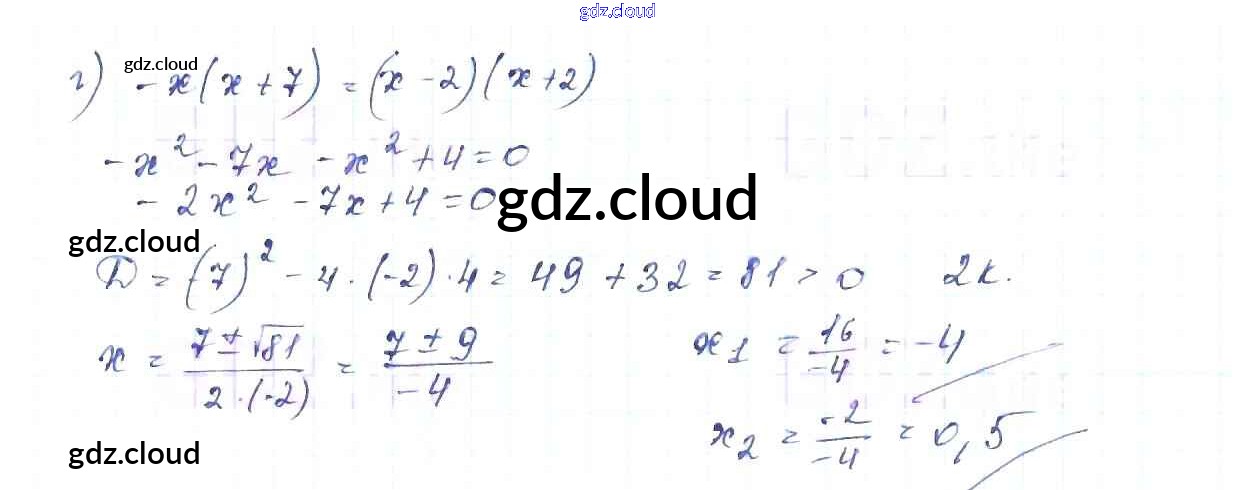 gdz.cloud
gdz.cloud
г) -x(x+7) = (x-2)(x+2)
-x² - 7x - x² + 4 = 0
- 2x² - 7x + 4 = 0
gdz.cloud
gdz.cloud
D = (-7)² - 4·(-2)·4 = 49 + 32 = 81 > 0 2к.
x = (7 ± √81)/(2·(-2)) = (7 ± 9)/(-4)
x1 = 16/(-4) = -4
x2 = (-2)/(-4) = 0,5
gdz.cloud